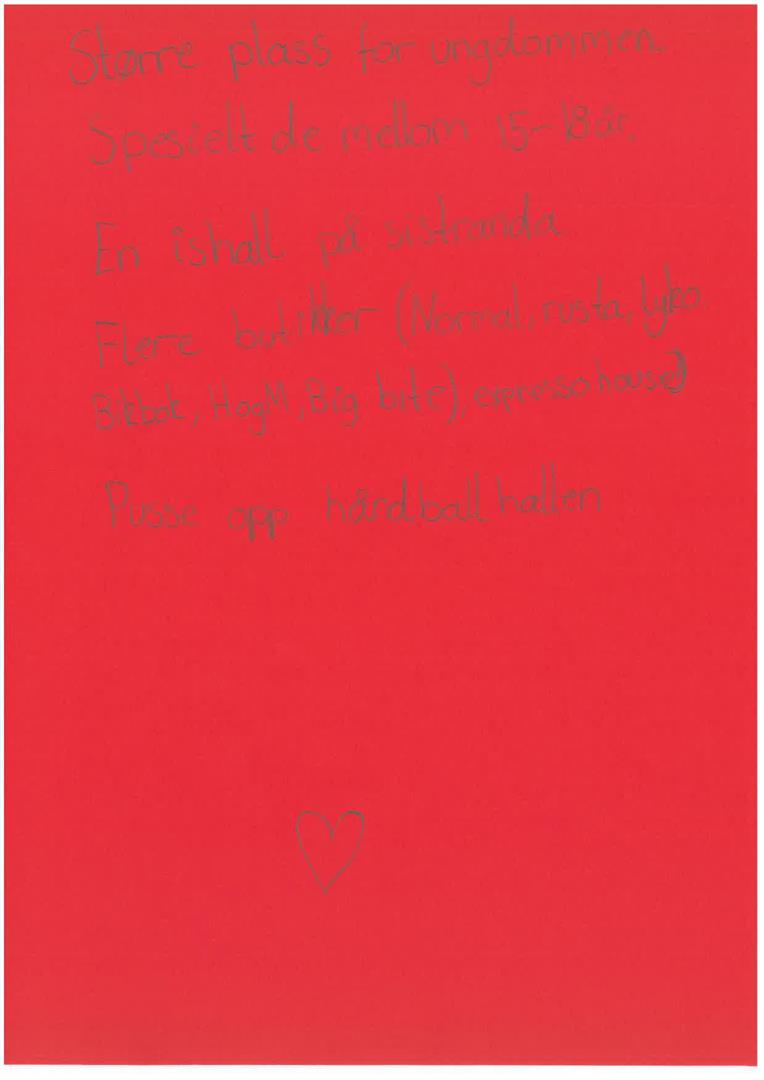 Større plass for ungdommen
Spesielt de mellom 15-18 år.
En ishall på sistranda
Flere butikker (Normal, rusta, lyko.
Bikbok, HogM, Big bite), espressohouse)
Pusse opp håndballhallen